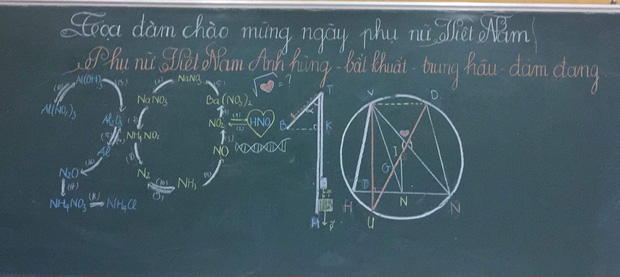 Tọa đàm chào mừng ngày phụ nữ Việt Nam!
Phụ nữ Việt Nam Anh hùng - bất khuất - trung hậu - đảm đang
Al(OH)3
NaNO3
= ?
Al(NO3)3
NaNO3
Ba(NO3)2
Al2O3
NH4NO2
NO2
HNO3
Al
NO
N2O
N2
NH3
NH4NO3
NH4Cl
T
B
K
V
D
I
G
H
N
N
U